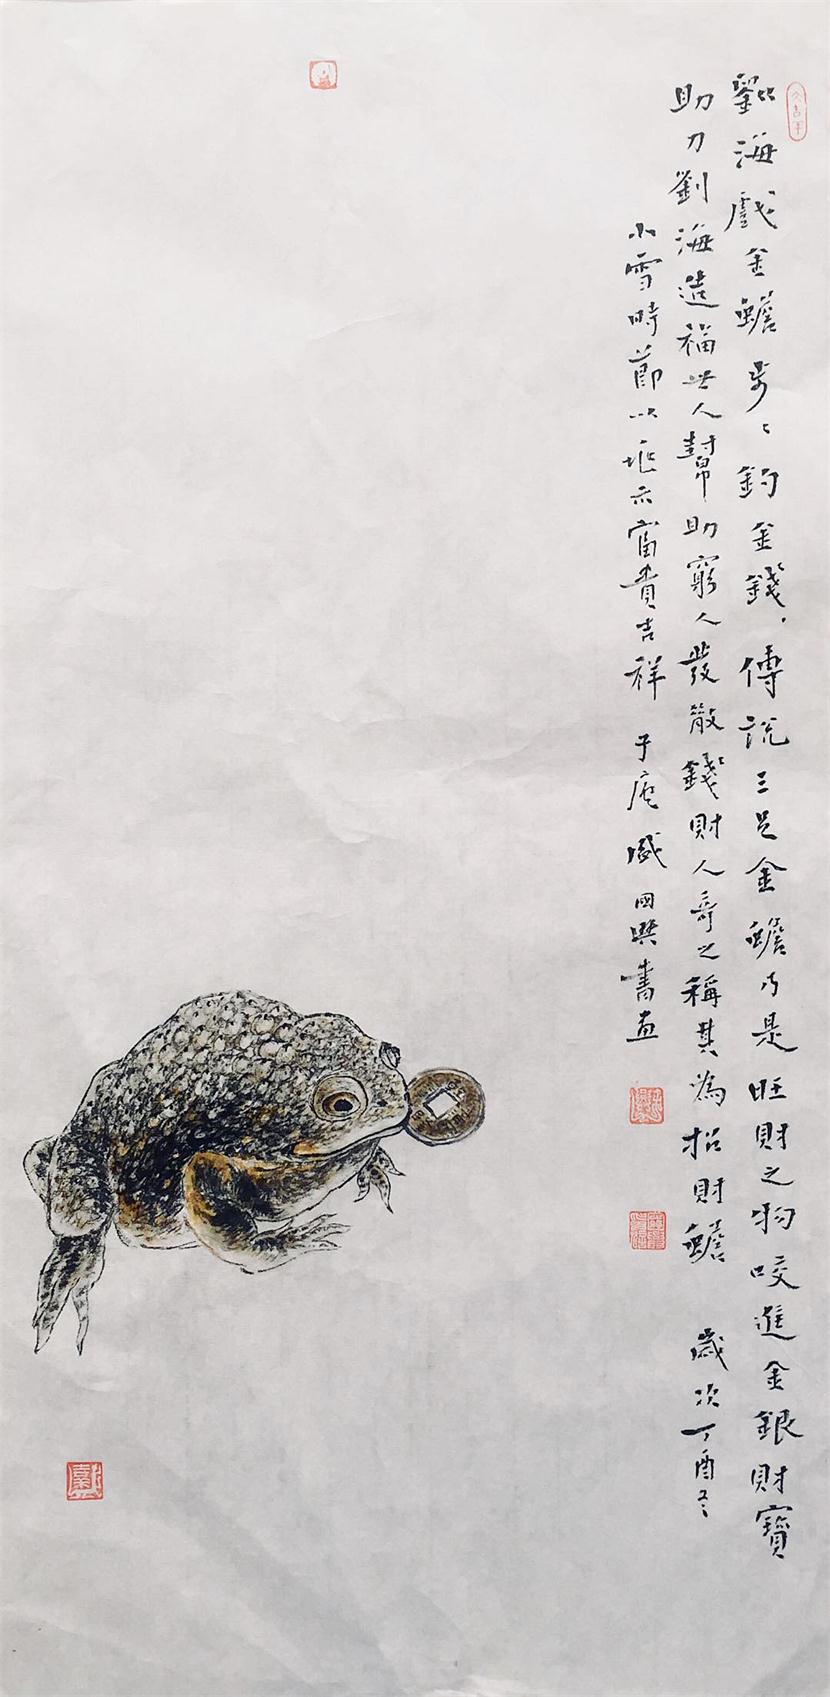 劉海戲金蟾步〻釣金錢，傳說三足金蟾乃是旺財之物咬進金銀財寶
助力劉海造福世人幫助窮人發散錢財人奇之稱其為招財蟾 歲次丁酉冬
小雪時節以示富貴吉祥 子庵 國書畫